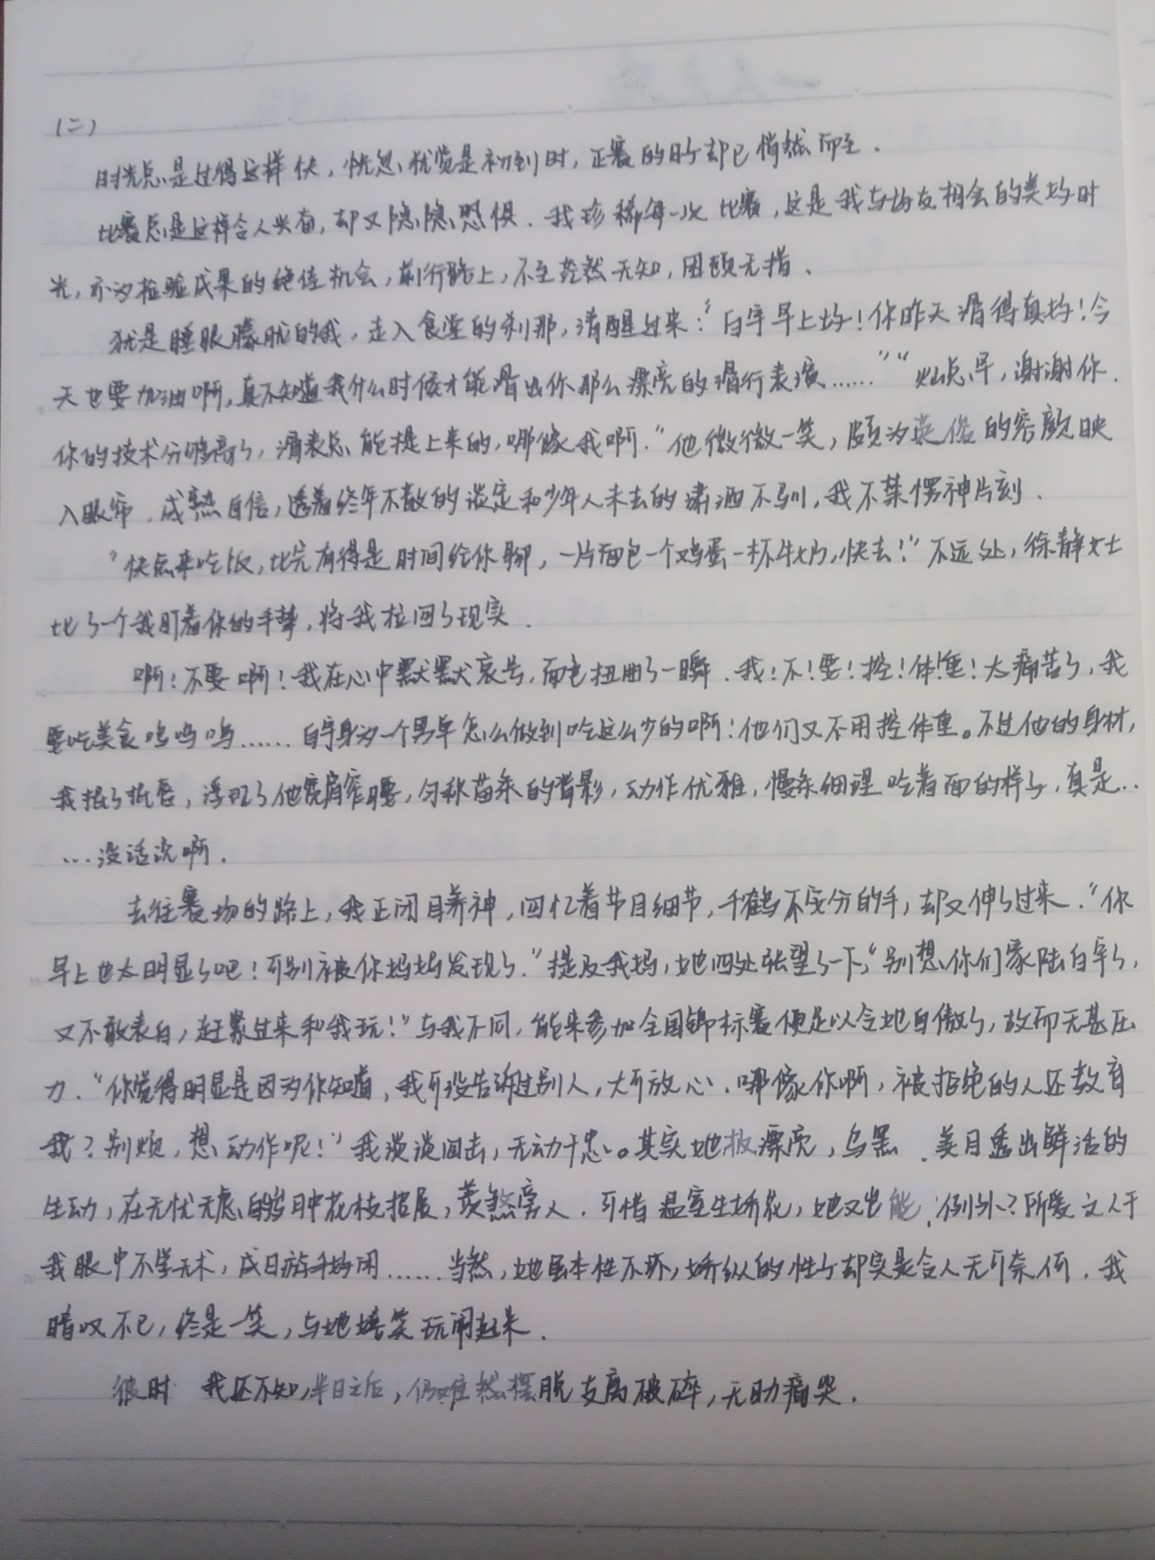 (二)
时光总是过得这样快，恍忽犹觉是初到时，正赛的日子却已悄然而至．
比赛总是这样令人兴奋，却又隐隐恐惧．我珍稀每一次比赛，这是我与好友相会的美好时
光，亦为检验成果的绝佳机会，前行路上，不至茫然无知，困顿无措．
犹是睡眼朦胧的我，走入食堂的刹那，清醒过来：“白宇早上好！你昨天滑得真好！今
天也要加油啊，真不知道我什么时候才能滑出你那么漂亮的滑行表演……”“早，谢谢你．
你的技术分够高了，滑表总能提上来的，哪像我啊．”他微微一笑，颇为英俊的容颜映
入眼帘．成熟自信，透着终年不散的淡定和少年人未去的潇洒不驯，我不禁愣神片刻．
“快点来吃饭，比完有得是时间给你聊，一片面包一个鸡蛋一杯牛奶，快去！”不远处，徐静女士
比了一个我盯着你的手势，将我拉回了现实．
啊！不要啊！我在心中默默哀号，面色扭曲了一瞬．我！不！要！控！体！重！太痛苦了，我
要吃美食呜呜呜……白宇身为一个男单怎么做到吃这么少的啊！他们又不用控体重。不过他的身材，
我抿了抿唇，浮现了他宽肩窄腰，匀称苗条的背影，动作优雅，慢条细理吃着面的样子，真是…
…没话说啊．
去往赛场的路上，我正闭目养神，回忆着节目细节，千鹤不安分的手，却又伸了过来．“你
早上也太明显了吧！可别被你妈妈发现了．”提及我妈，她四处张望了一下，“别想你们家陆白宇了，
又不敢表白，赶紧过来和我玩！”与我不同，能来参加全国锦标赛便足以令她自傲了，故而无甚压
力．“你觉得明显是因为你知道，我可没告诉过别人，大可放心．哪像你啊，被拒绝的人还教育
我？别烦，想动作呢！”我淡淡回击，无动于忠。其实她极漂亮，乌黑．美目透出鲜活的
生动，在无忧无虑的岁月中花枝招展，羡煞旁人．可惜温室生娇花，她又岂能例外？所爱之人于
我眼中不学无术，成日游手好闲……当然，她虽本性不坏，娇纵的性子却实是令人无可奈何．我
暗叹不已，终是一笑，与她嬉笑玩闹起来．
彼时 我还不知，半日之后，仍难然摆脱支离破碎，无助痛哭．